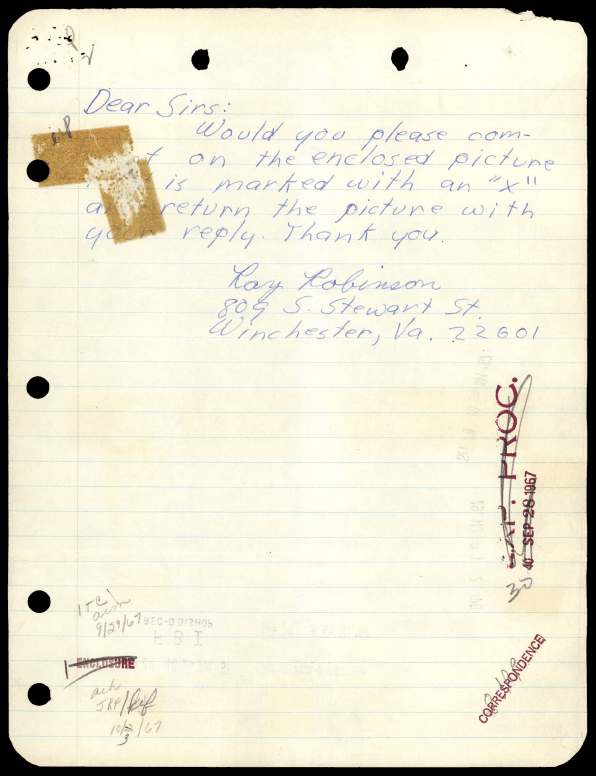 Dear Sirs:
Would you please com-
t on the enclosed picture
is marked with an "x"
a return the picture with
reply. Thank you.
Ray Robinson
809 S. Stewart St.
Winchester, Va. 22601
PROC.
40 SEP 28 1967
30
1 TC
9/29/67
REC-D
FBI
1 ENCLOSURE
ack
JRP/
10/3/67
CORRESPONDENCE